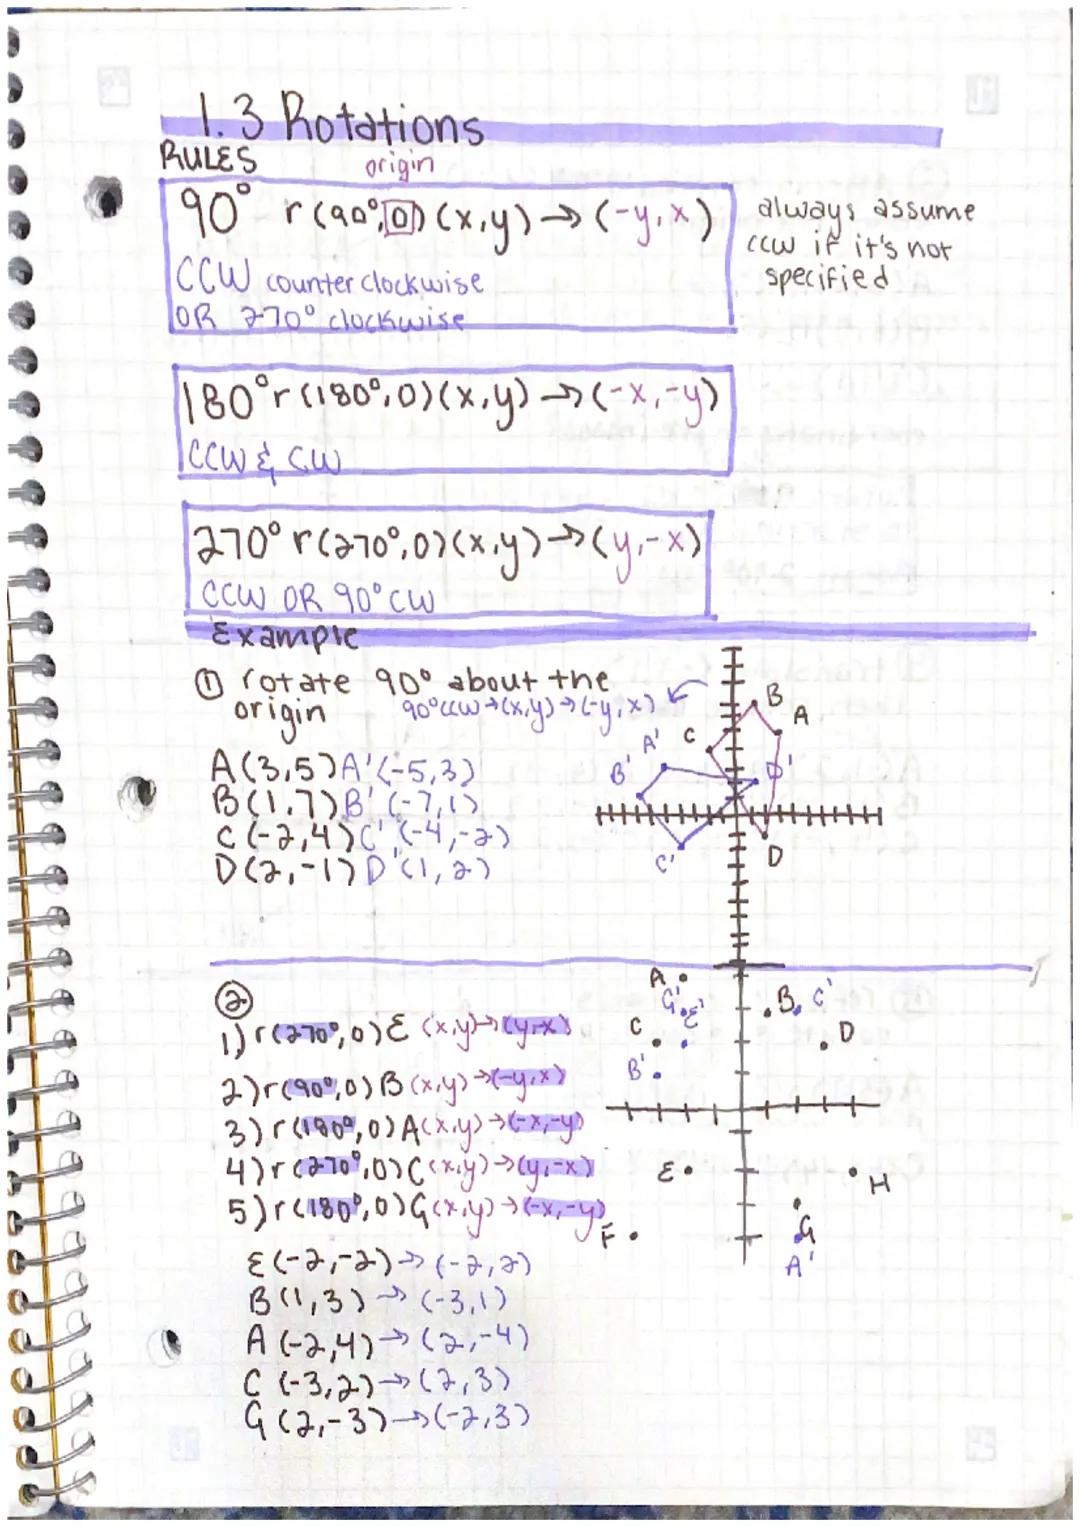 1.3 Rotations
RULES
origin
90° r(90°,0)(x,y)→(-y,x)
CCW counter clockwise
OR 270° clockwise
always assume
ccw if it's not
specified
180° r(180°,0)(x,y)→(-x,-y)
CCW & CW
270° r(270°,0)(x,y)→(y,-x)
CCW OR 90° CW
Example
① rotate 90° about the
origin 90°ccw→(x,y)→(-y,x)
A(3,5) A'(-5,3)
B(1,7) B'(-7,1)
C(-2,4) C'(-4,-2)
D(2,-1) D'(1,2)
B
A
C
A'
B'
D'
C'
D
②
1) r(270°,0) E (x,y)→(y,-x)
2) r(90°,0) B (x,y)→(-y,x)
3) r(180°,0) A (x,y)→(-x,-y)
4) r(270°,0) C (x,y)→(y,-x)
5) r(180°,0) G (x,y)→(-x,-y)
E(-2,-2)→(-2,2)
B(1,3)→(-3,1)
A(-2,4)→(2,-4)
C(-3,2)→(2,3)
G(2,-3)→(-2,3)
A
G'
E'
B
C'
C
D
B'
E
H
F
G
A'